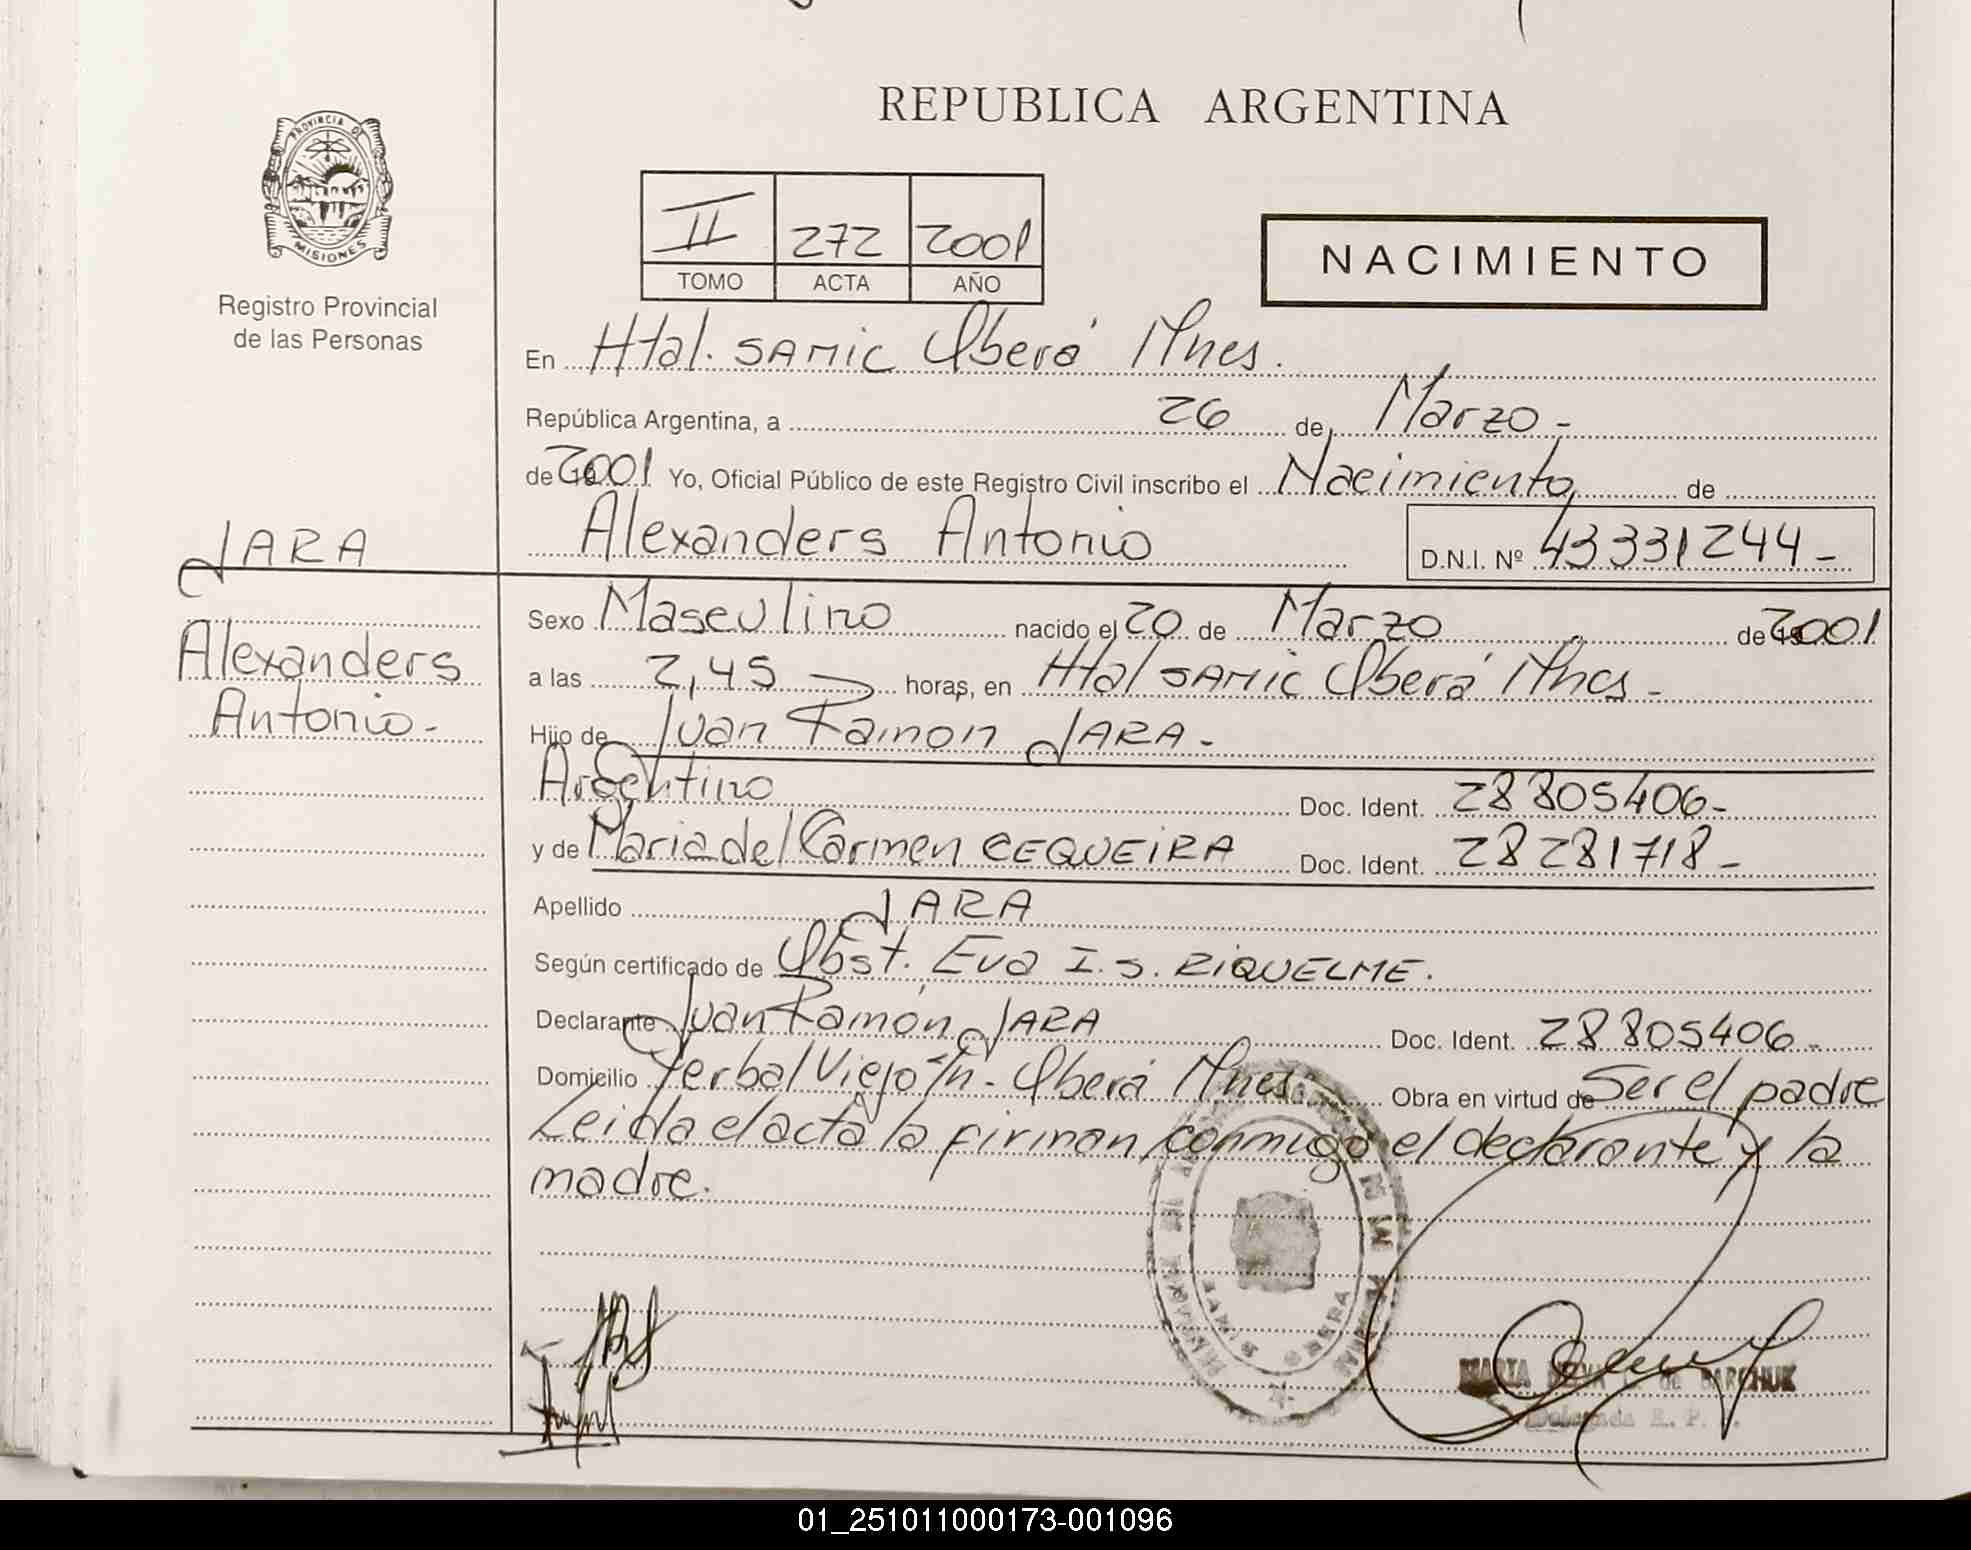 REPUBLICA ARGENTINA
PROVINCIA DE
MISIONES
Registro Provincial
de las Personas
II 272 2001
TOMO ACTA AÑO
NACIMIENTO
En Htal. SAMIC Oberá Mnes.
República Argentina, a 26 de Marzo -
de 2001 Yo, Oficial Público de este Registro Civil inscribo el Nacimiento de
Alexanders Antonio D.N.I. Nº 43331244 -
JARA
Alexanders
Antonio -
Sexo Masculino nacido el 20 de Marzo de 2001
a las 2,45 horas, en Htal SAMIC Oberá Mnes -
Hijo de Juan Ramon JARA -
Argentino Doc. Ident. 28805406 -
y de Maria del Carmen CEQUEIRA Doc. Ident. 28281718 -
Apellido JARA
Según certificado de Obst. Eva I. S. RIQUELME.
Declarante Juan Ramón JARA Doc. Ident. 28805406 -
Domicilio Yerbal Viejo s/n - Oberá Mnes. Obra en virtud de Ser el padre
Leida el acta la firman conmigo el declarante y la
madre.
MARTA DE BARCHUK
01_251011000173-001096